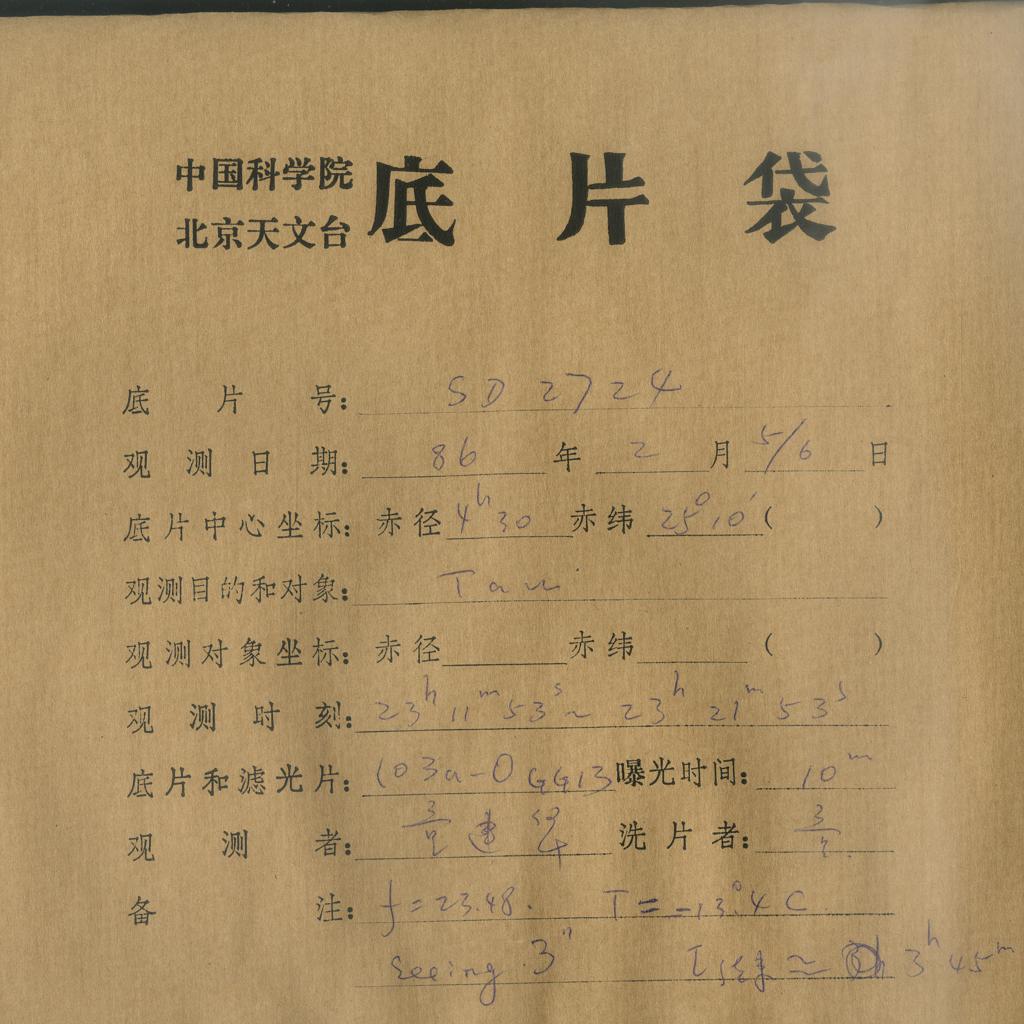 中国科学院
北京天文台
底片袋
底片号: SD 2724
观测日期: 86 年 2 月 5/6 日
底片中心坐标: 赤径 4h 30 赤纬 25°10′ ( )
观测目的和对象: Tau
观测对象坐标: 赤径 赤纬 ( )
观测时刻: 23h 11m 53s ~ 23h 21m 53s
底片和滤光片: 103a-O GG13 曝光时间: 10m
观测者: 建华 洗片者:
备注: f = 23.48. T = -13°.4 C
seeing 3″ ≈ 3h 45m